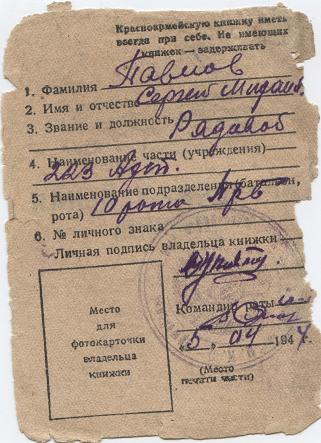 Красноармейскую книжку иметь
всегда при себе. Не имеющих
книжек — задерживать
1. Фамилия Павлов
2. Имя и отчество Сергей
3. Звание и должность
Рядовой
4. Наименование части (учреждения)
223
5. Наименование подразделения (батальон,
рота) рота
6. № личного знака
Личная подпись владельца книжки
Место
для
фотокарточки
владельца
книжки
Командир роты
"5" 04 1944
(Место
печати части)